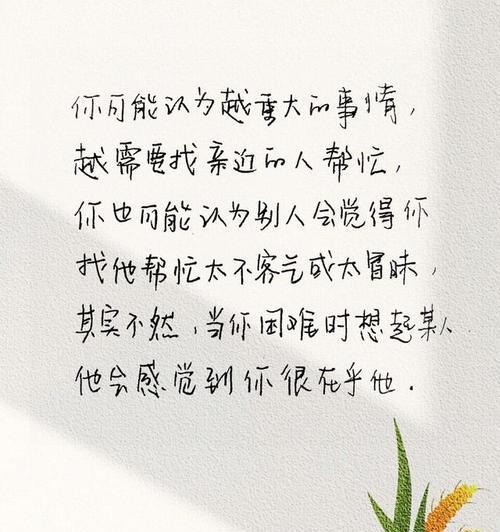 你可能认为越重大的事情，
越需要找亲近的人帮忙，
你也可能认为别人会觉得你
找他帮忙太不客气或太冒昧，
其实不然，当你困难时想起某人
他会感觉到你很在乎他．